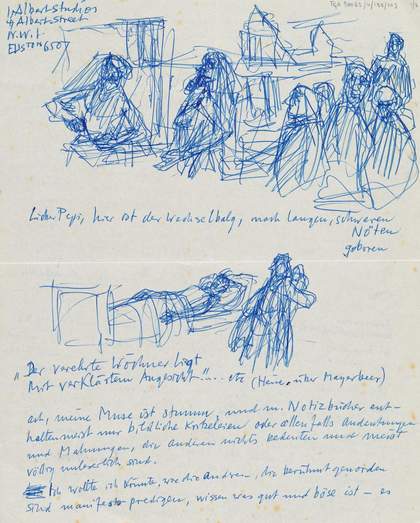 1, Albert Studios
4 Albert Street
N.W.1.
EUSton 6507
TGA 20083/4/130/103
1/2
Lieber Pepi, hier ist der Wechselbalg, nach langen, schweren
Nöten
geboren
„Der verehrte Wöchner liegt
Mit verklärtem Angesicht"... etc (Heine, über Mayerbeer)
ach, meine Muse ist stumm, und m. Notizbücher ent-
halten meist nur bildliche Kritzeleien oder allenfalls Andeutungen
und Mahnungen, die anderen nichts bedeuten und meist
völlig unleserlich sind.
Ich wollte ich könnte, wie die andren, die berühmt geworden
sind manifest predigen, wissen was gut und böse ist – es